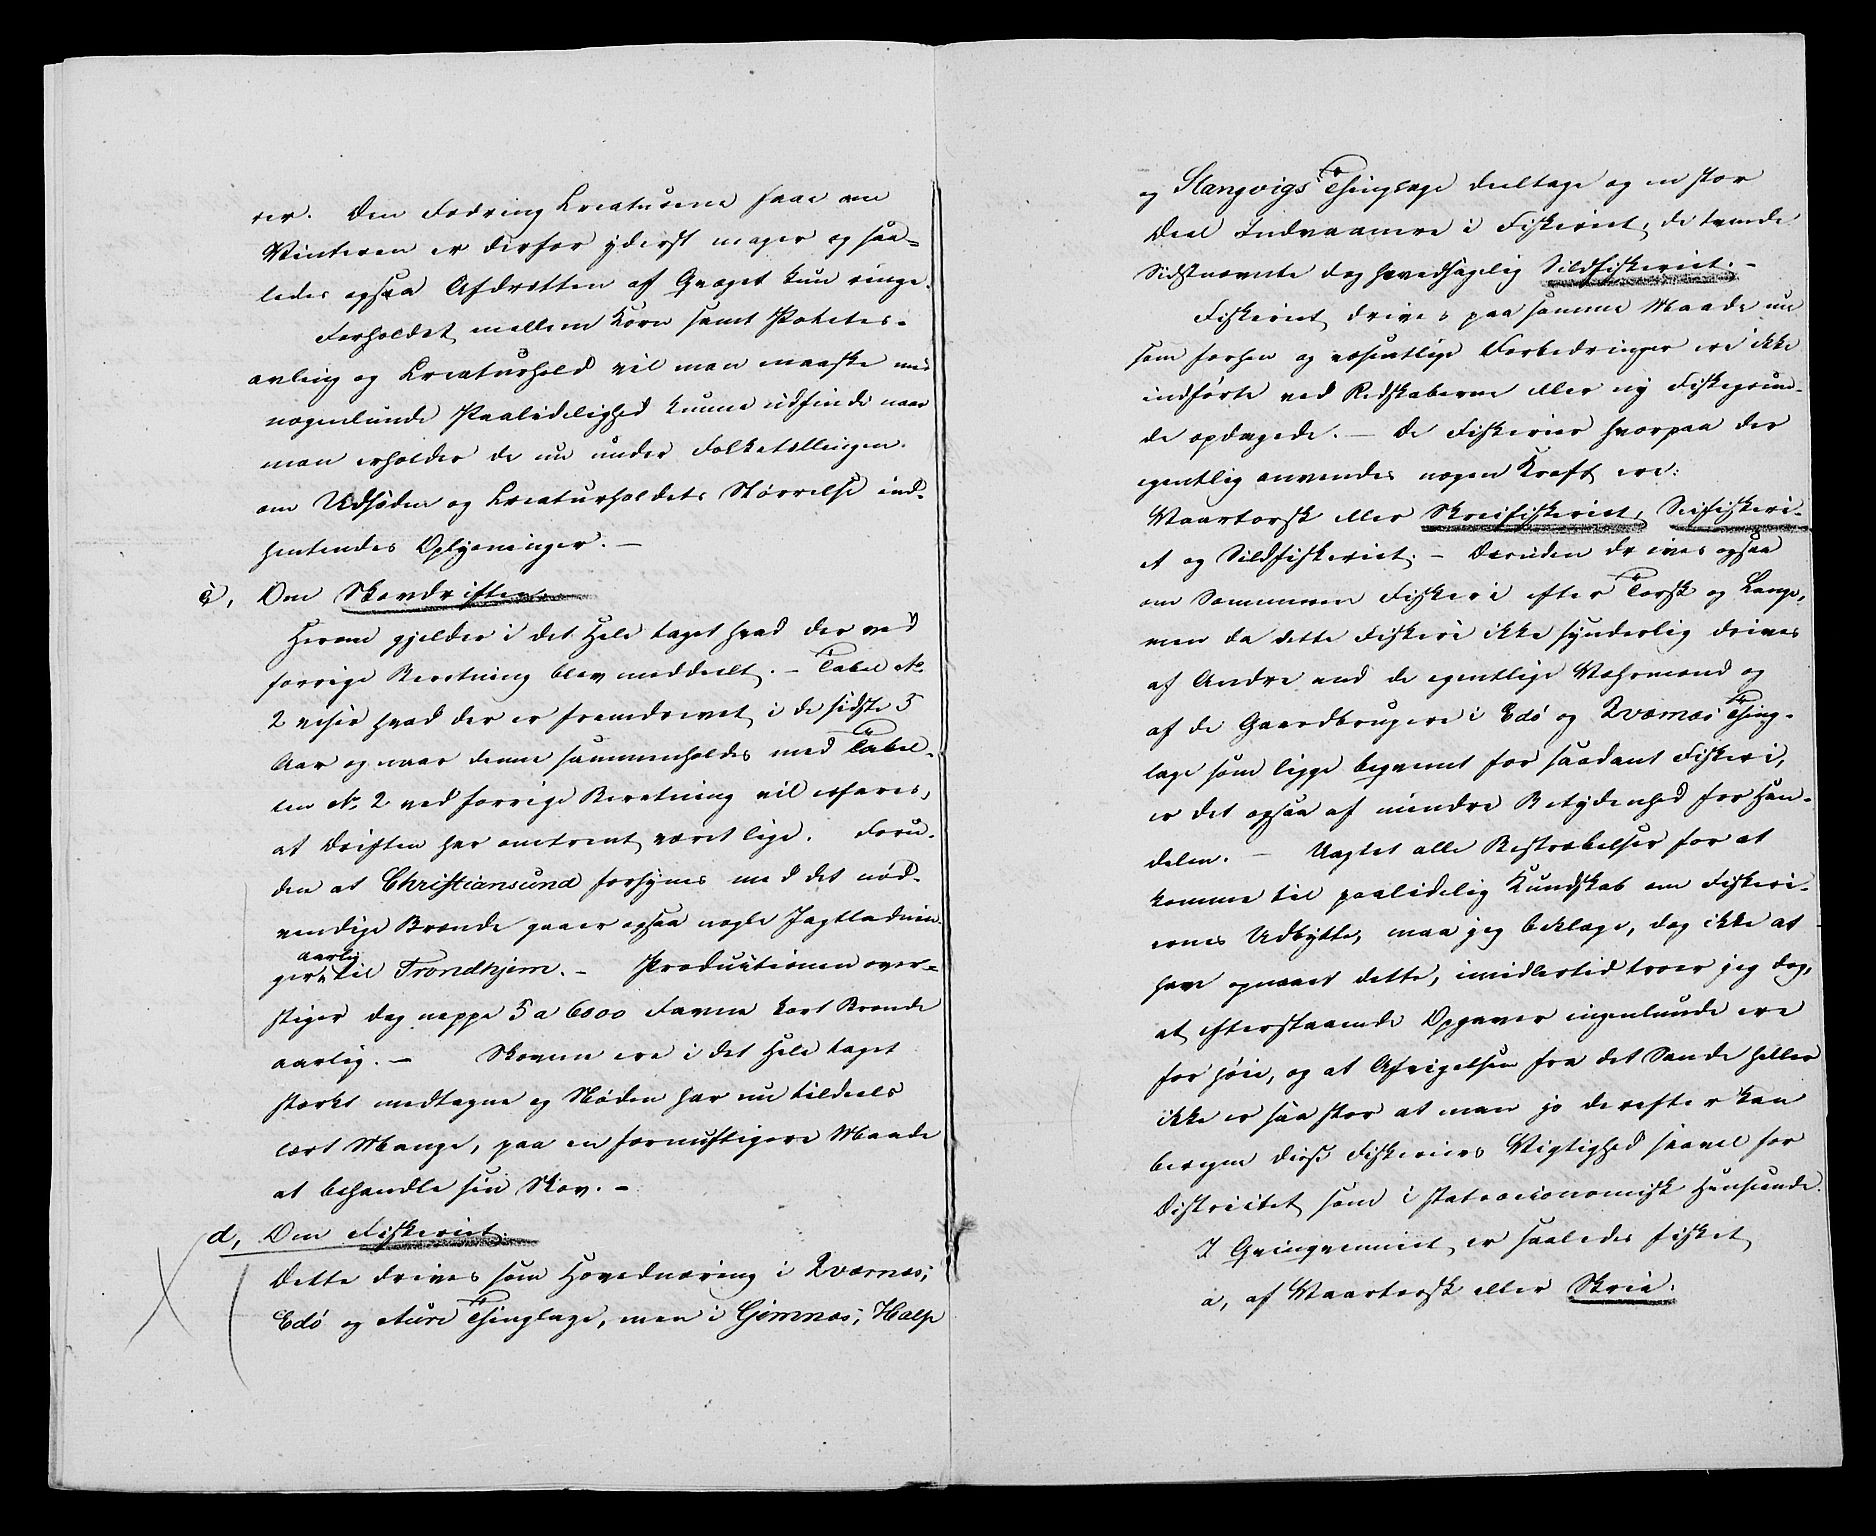 rer. Den Fodring Creaturene faae om
Vinteren er derfor yderst mager og saa-
ledes ogsaa Afdrotten af Qvæget kun ringe.
Forholdet mellem Korn samt Potetes-
avling og Creaturhold vil man maaske med
nogenlunde Paalidelighed kunne udfinde naar
man erholder de nu under Folketællingen
om Udsæden og Creaturholdets Størrelse ind-
hentendes Oplysninger. —
c, Om Skovdriften.
Herom gjelder i det Hele taget hvad der ved
forrige Beretning blev meddeelt. — Tabel No
2 viser hvad der er fremdrevet i de sidste 5
Aar og naar denne sammenholdes med Tabel-
len No 2 ved forrige Beretning vil erfares,
at Driften har omtrent været lige. Foru-
den at Christiansund forsynes med det nød-
vendige Brænde gaaer ogsaa nogle Jagtladnin-
aarlig
ger til Trondhjem. — Productionen over-
stiger dog neppe 5 a 6000 Favne kort Brænde
aarlig. — Skovene ere i det Hele taget
stærkt medtagne og Nøden har nu tildeels
lært Mange, paa en fornuftigere Maade
at behandle sin Skov. —
d, Om Fiskeriet.
Dette drives som Hovednæring i Qværnæs,
Edö og Aure Thinglage, men i Gimnæs, Halse
og Stangvigs Thinglage deeltage og en stor
Deel Indvaanere i Fiskeriet, de tvende
Sidstnævnte dog hovedsagelig Sildfiskeriet. —
Fiskeriet drives paa samme Maade nu
som forhen og væsentlige Forbedringer ere ikke
indførte ved Redskaberne eller ny Fiskegrun-
de opdagede. — De Fiskerier hvorpaa der
egentlig anvendes nogen Kraft ere:
Vaartorsk eller Skreifiskeriet, Seifiskeri-
et og Sildfiskeriet. — Desuden drives ogsaa
om Sommeren Fiskeri efter Torsk og Lange,
men da dette Fiskeri ikke synderlig drives
af Andre end de egentlige Vehrmænd og
af de Gaardbrugere i Edö og Qværnæs Thing-
lage som ligge beqvemt for saadant Fiskeri,
er det ogsaa af mindre Betydenhed for Han-
delen. — Uagtet alle Bestræbelser for at
komme til paalidelig Kundskab om Fiskeri-
ernes Udbytte, maa jeg beklage, dog ikke at
have opnaaet dette, imidlertid troer jeg dog,
at efterstaaende Opgaver ingenlunde ere
for høie, og at Afvigelsen fra det Sande heller
ikke er saa stor at man jo derefter kan
beregne disse Fiskeriers Vigtighed saavel for
Districtet som i statsøconomisk Henseende.
I Qvinqvenniet er saaledes fisket
a, af Vaartorsk eller Skrei.